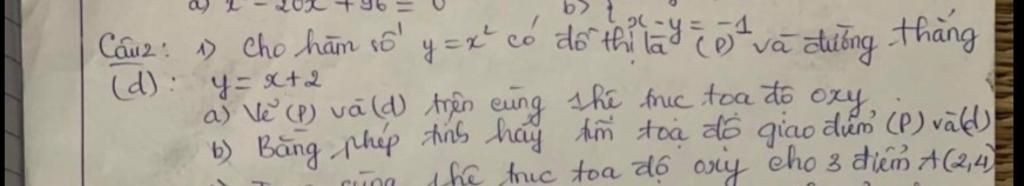 a) x² - 20x + 96 = 0
b) x - y = -1
Câu 2: 1) Cho hàm số y = x² có đồ thị là (P) và đường thẳng
(d): y = x + 2
a) Vẽ (P) và (d) trên cùng 1 hệ trục toạ độ oxy
b) Bằng phép tính hãy tìm toạ độ giao điểm (P) và (d)
cùng 1 hệ trục toạ độ oxy cho 3 điểm A(2,4)